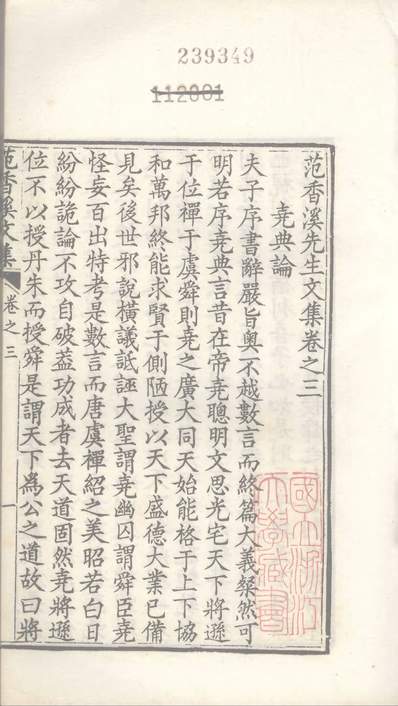 239349
112001
范香溪先生文集卷之三
堯典論
夫子序書辭嚴旨奧不越數言而終篇大義粲然可
明若序堯典言昔在帝堯聰明文思光宅天下將遜
于位禪于虞舜則堯之廣大同天始能格于上下協
和萬邦終能求賢于側陋授以天下盛德大業已備
見矣後世邪說橫議詆誣大聖謂堯幽囚謂舜臣堯
怪妄百出特考是數言而唐虞禪紹之美昭若白日
紛紛詭論不攻自破葢功成者去天道固然堯將遜
位不以授丹朱而授舜是謂天下爲公之道故曰將
范香溪文集
卷之三
一
國立浙江
大學藏書